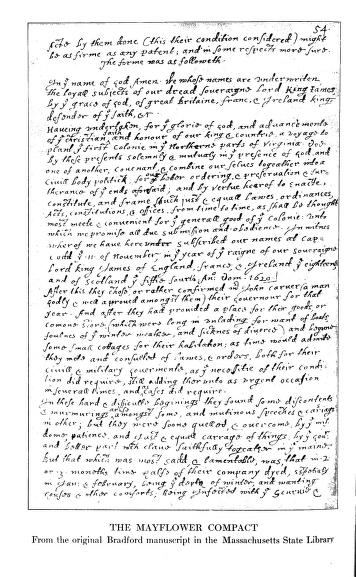 54
by them done (this their condition considered) might
be as firme as any patent; and in some respects more sure.
The forme was as followeth.
In yͤ name of god Amen. We whose names are underwriten
the loyall subjects of our dread soveraigne Lord King James
by yͤ grace of god, of great Britaine, franc, & Ireland king,
defender of yͤ faith, &c
Haveing undertaken, for yͤ glorie of god, and advancemente
of yͤ christian faith and honour of our king & countrie, a voyage to
plant yͤ first colonie in yͤ Northerne parts of Virginia. Doe
by these presents solemnly & mutualy in yͤ presence of god, and
one of another, covenant, & combine our selves togeather into a
civill body politick; for our better ordering, & preservation & fur=
therance of yͤ ends aforesaid; and by vertue hearof to enacte,
constitute, and frame such just & equall lawes, ordinances,
Acts, constitutions, & offices, from time to time, as shall be thought
most meete & convenient for yͤ generall good of yͤ colonie: unto
which we promise all due submission and obedience. In witnes
wherof we have hereunder subscribed our names at Cap=
Codd yͤ 11 of November, in yͤ year of yͤ raigne of our soveraigne
Lord king James of England, france, & Ireland yͤ eighteenth
and of Scotland yͤ fiftie fourth. Ano: Dom. 1620
After this they chose, or rather confirmed mʳ John Carver (a man
godly & well approved amongst them) their Governour for that
year. And after they had provided a place for their goods, or
comone store, (which were long in unlading for want of boats,
foulnes of yͤ winter weather, and sicknes of diverce) and begune
some small cottages for their habitation; as time would admitte
they mette and consulted of lawes, & orders, both for their
civill & military Govermente, as yͤ necessitie of their condi=
tion did require, still adding therunto as urgent occasion
in severall times, and as cases did require.
In these hard & difficulte beginings they found some discontents
& murmurings arise amongst some, and mutinous speeches & cariags
in other; but they were soone quelled, & overcome, by yͤ wis=
dome, patience, and just & equall carrage of things, by yͤ govʳ
and better part wᶜʰ clave faithfully togeather in yͤ maine.
But that which was most sadd, & lamentable, was, that in 2
or 3 moneths time halfe of their company dyed, espetialy
in Jan: & february, being yͤ depth of winter, and wanting
houses & other comforts; being infected with yͤ Scurvie &
THE MAYFLOWER COMPACT
From the original Bradford manuscript in the Massachusetts State Library